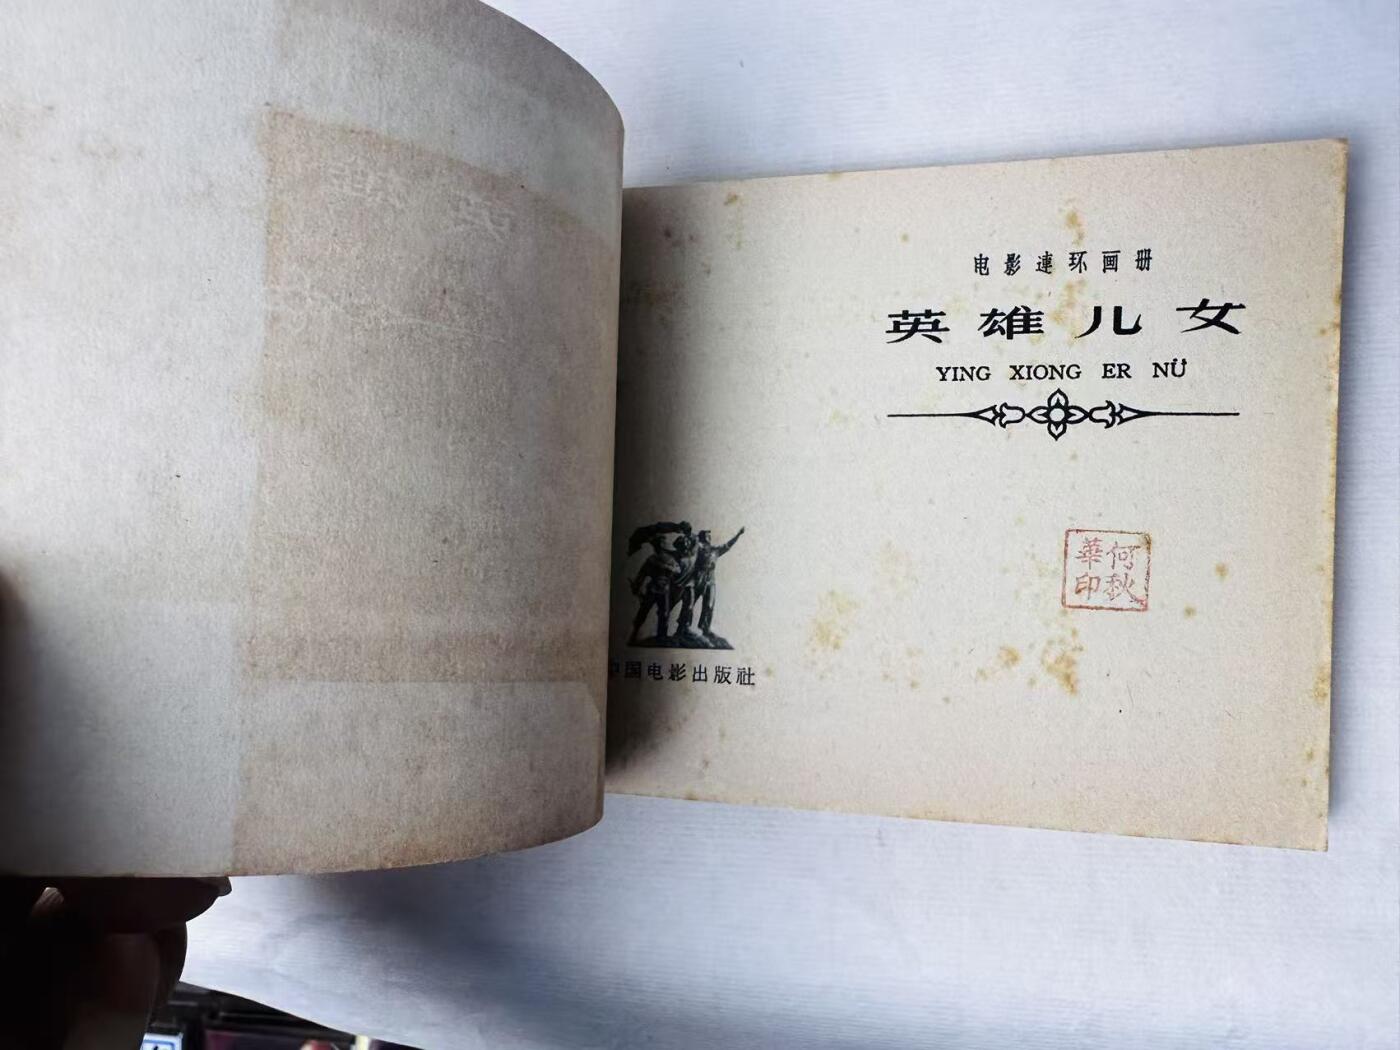 电影連环画册
英雄儿女
YING XIONG ER NÜ
何秋
華印
中国电影出版社